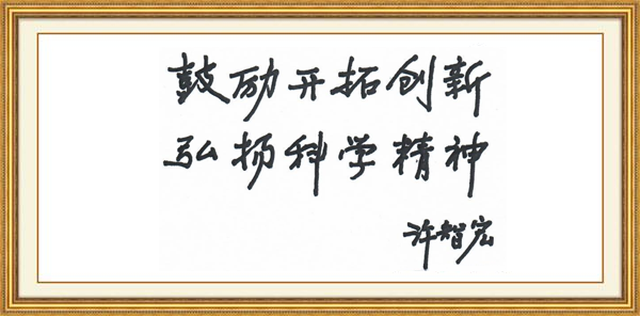 鼓励开拓创新
弘扬科学精神
许智宏